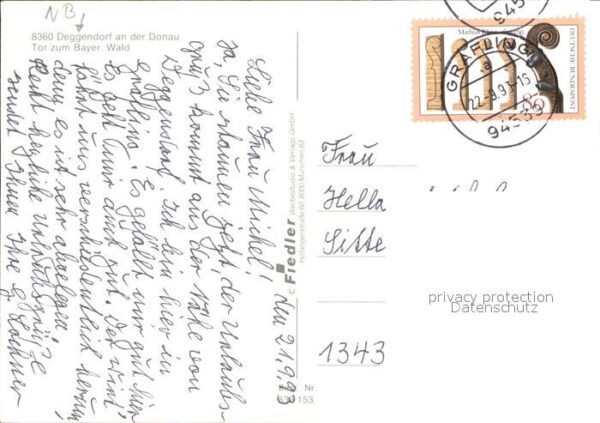 NB
8360 Deggendorf an der Donau
Tor zum Bayer. Wald
Liebe Frau Michel!
den 21.9.93
Ja, Sie staunen jetzt, der Urlaubs-
gruß kommt aus der Nähe von
Deggendorf. Ich bin hier in
Grafling. Es gefällt mir gut hier
es geht mir auch gut. Der Wirt
fährt uns verschiedentlich herum,
denn es ist sehr abgelegen.
Recht herzliche Urlaubsgrüße
sendet Ihnen Ihre G. Lochner
© Fiedler Werbestudio & Verlags GmbH
8000 München 83
Best. Nr.
153
DEUTSCHE BUNDESPOST
80
GRAFLING
a
22.-9.93-15
94539
Frau
Hella
Sitte
1343
privacy protection
Datenschutz